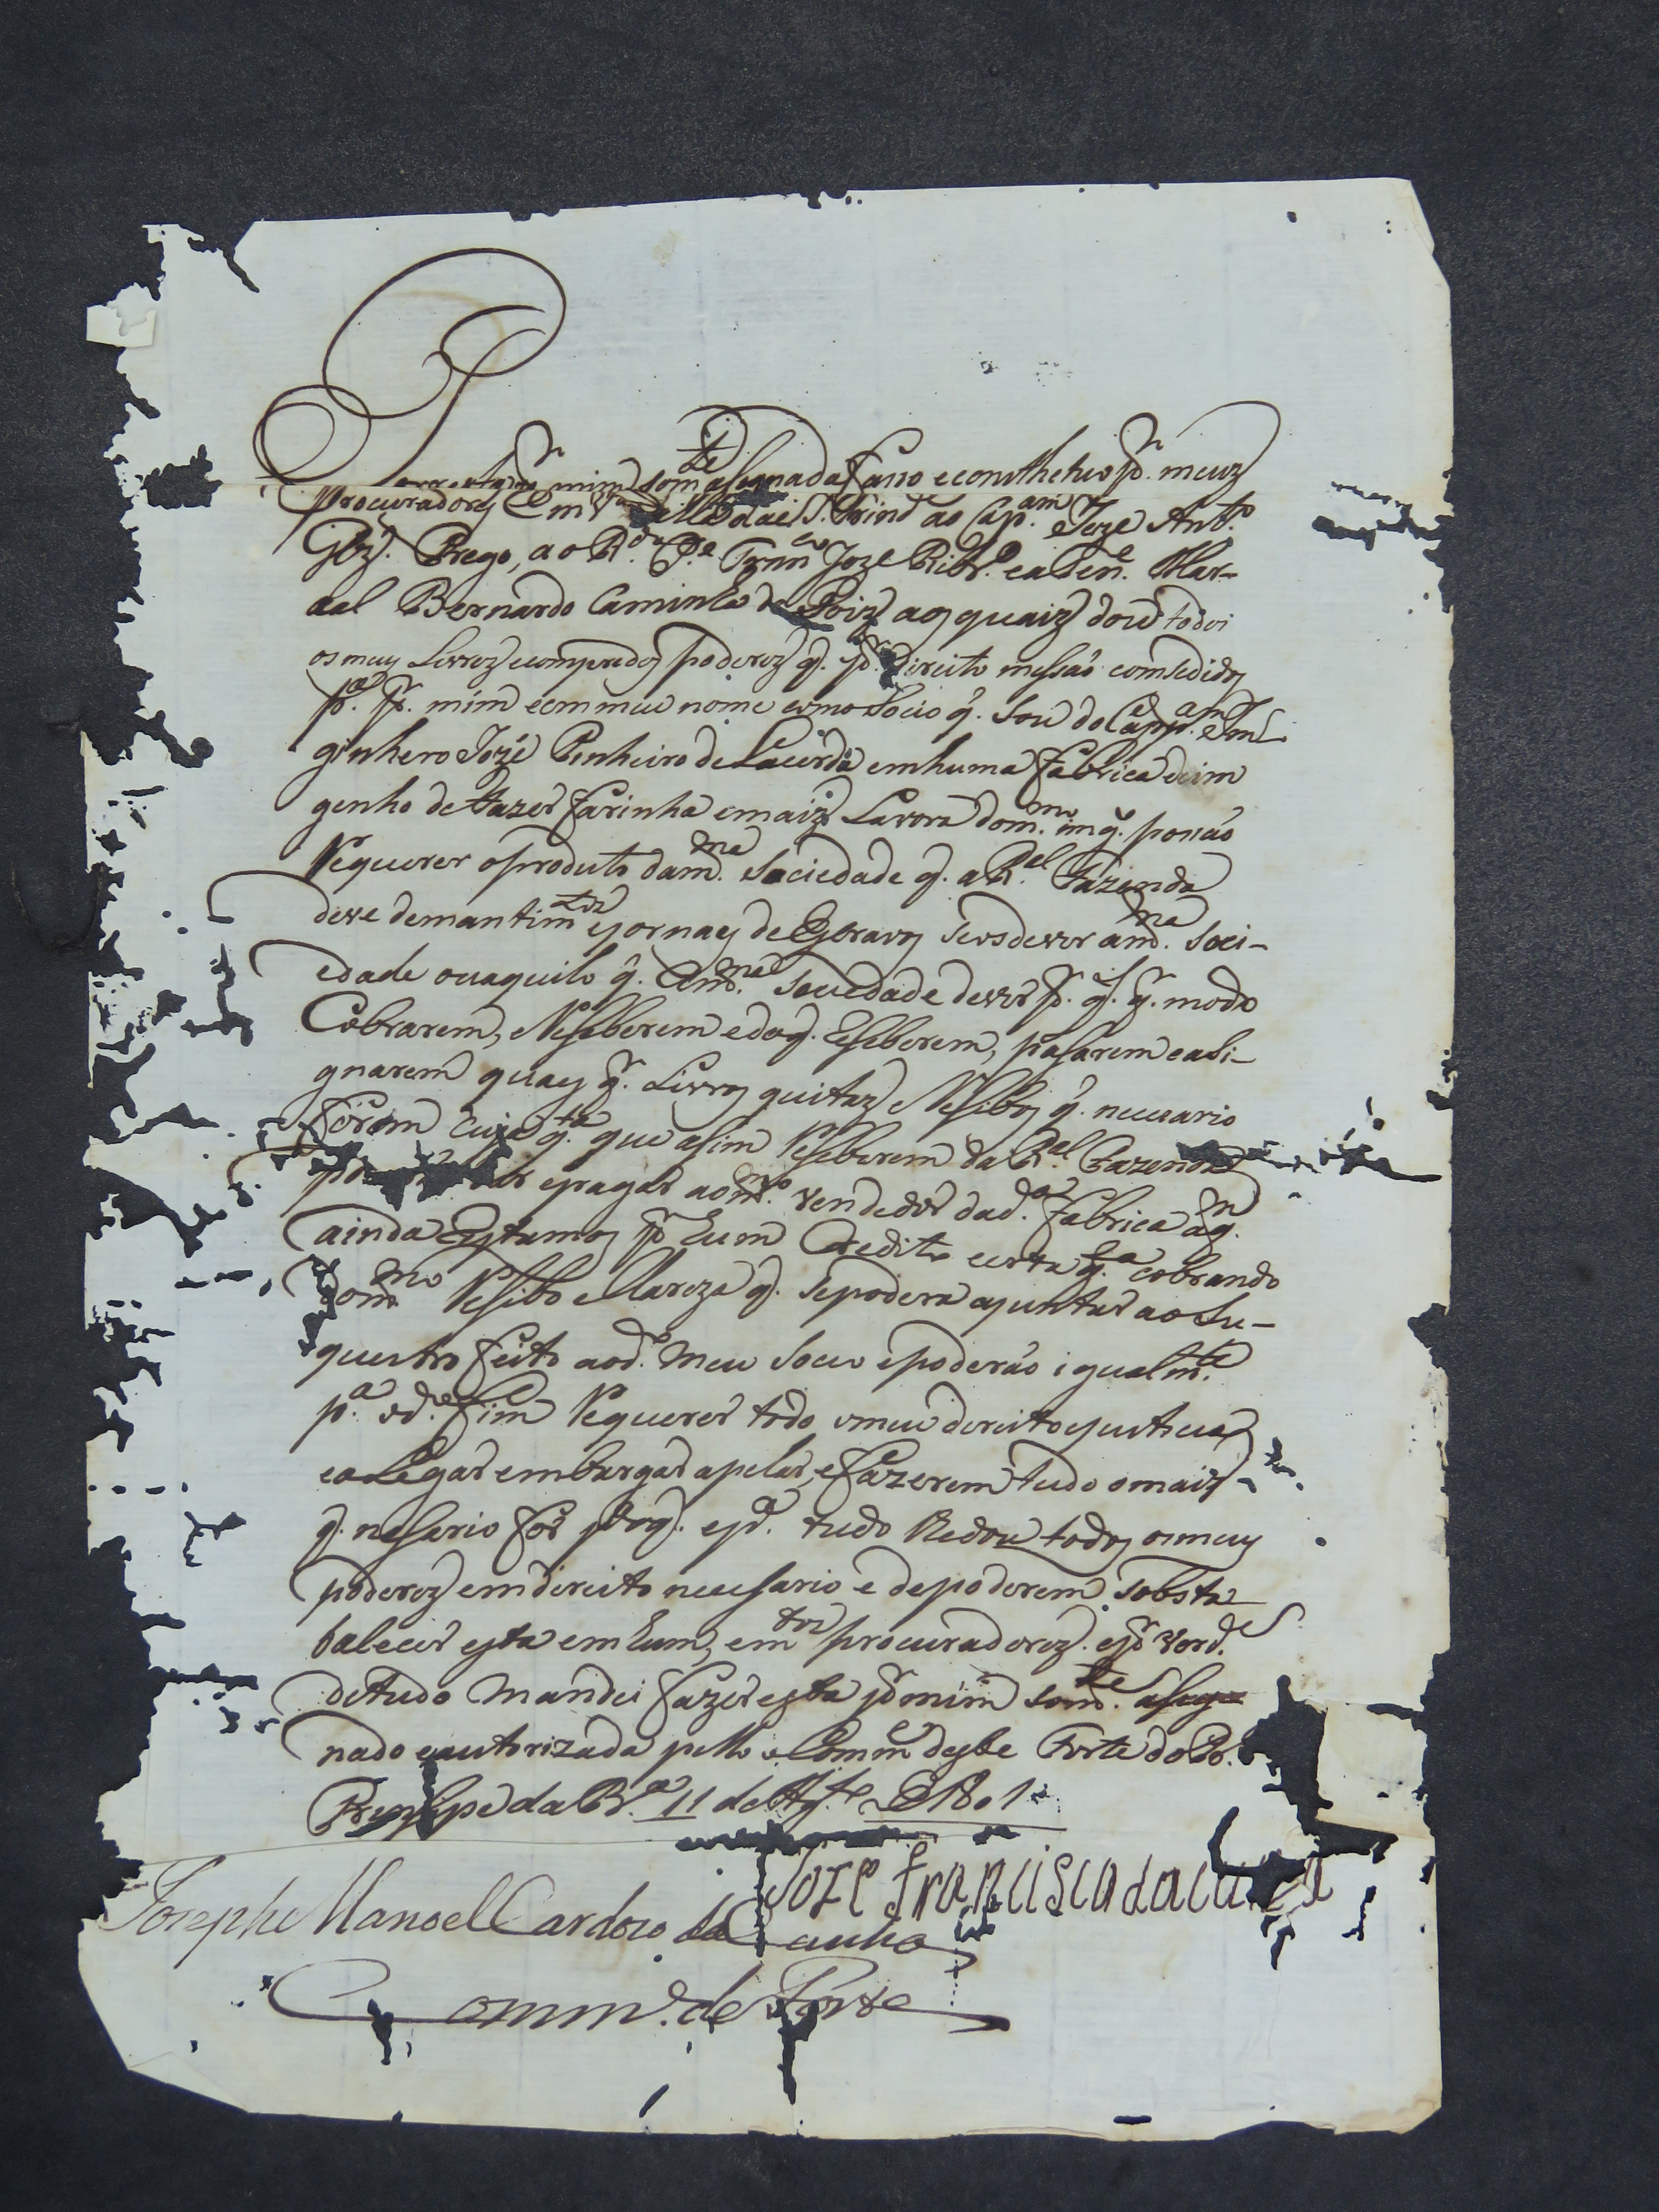 por mim som.te asegnada Faso e conithetuo p.r meuz
Procuradores Em V.a S. Trind.e ao Cap.am Joze Ant.o
Glz'. Prego, ao R.do P.e Fran.co Joze Ribr.o e a Ten.e Mar-
sal Bernardo Caminha de aos quaiz dou todos
os meus Livrez e compridos poderez q. p.r direito me são comsedidos
p.a p.r mim e em meu nome como Socio q. Sou do Capp.am e In-
ginhero Jozé Pinheiro de Lacerda em huma Fabrica de im
genho de Fazer Farinha e maiz Lavora do m.mo im q. ponão
Requerer o produto da m.ma Sociedade q. a R.al Fazenda
deve de mantim.tos e jornaes de Escravos Se os dever a m.ma Soci-
edade ou aquilo q. a m.ma Sociedade dever p.r q.l q.r modo
Cobrarem, e Reseberem e do q. Reseberem, pasarem e asi-
gnarem quaes q.r Livros quitaz e Resibos q. necesario
Forem cuja q.ta que asim Reseberem da R.al Fazenda
e pagar ao m.mo vendedor da d.a Fabrica a q.m
ainda Estamos p.r hum Credito certa q.ta cobrando
do m.mo Resibo e Clareza q. Se poderá ajuntar ao Su-
questro Feito ao d.o meu Socio e poderão igualm.te
p.a o d.o Fim Requerer todo o meu dereito e justica
e a Legar embargar apelar, e Fazerem tudo o maiz
q. nesario For p.a o q. e p.a tudo Redou todos os meus
poderez em direito necessario e de poderem Sobsta
balecer esta em hum, e m.tos procuradorez. e p.r verd.e
de tudo mandei Fazer esta p.r mim som.te aseg
nado e autorizada pello Comm.e deste Forte do
Prensipe da Br.a 11 de Ag.to de 1801
Joze Francisco da Cunha
Josephe Manoel Cardozo da Cunha
Comm.e de Forte